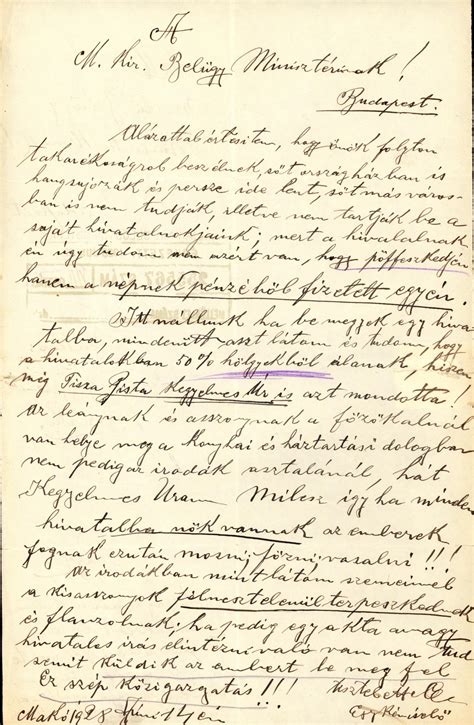 A
M. Kir. Belügy Ministérimnak!
Budapest.
Alázattal értesitem, hogy önök folyton
takarékoságrob beszélnek, sőt országház ban is
hangsujozák és persze ide lent, sőt más város-
ban is nem tudják, illetve nem tartják be a
saját hivatalnokjaink; mert a hivatalnak
én úgy tudom nem azért van, hogy pöffeszkedjen
hanem a népnek pénzéböb fizetett egyén.
Itt nállunk ha be megyek egy hiva-
talba, mindenütt aszt látom és tudom, hogy
a hivatalokban 50% hölgyekböl álanak, hiszen
még Tisza Pista Kegyelmes Úr is azt mondotta
az leánynak és asszonynak a főzőkalnál
van helye meg a Konyhai és háztartási dologban
nem pedig az irodák asztalánál, hát
Kegyelmes Uram Milesz igy ha minden
hivatalba nők vannak az emberek
fognak ezután mosni, főzni, vasalni!!!
Az irodákban mint látom szemeimel
a kisasszonyok terpeszkednek
és flavrolnak; ha pedig egy akta avagy
hivatalos irás elintézni való van nem tud
semmit küldik az embert be meg fel
Ez szép közigazgatás!!!
tisztelettel
Makó 1928 juni 14 én